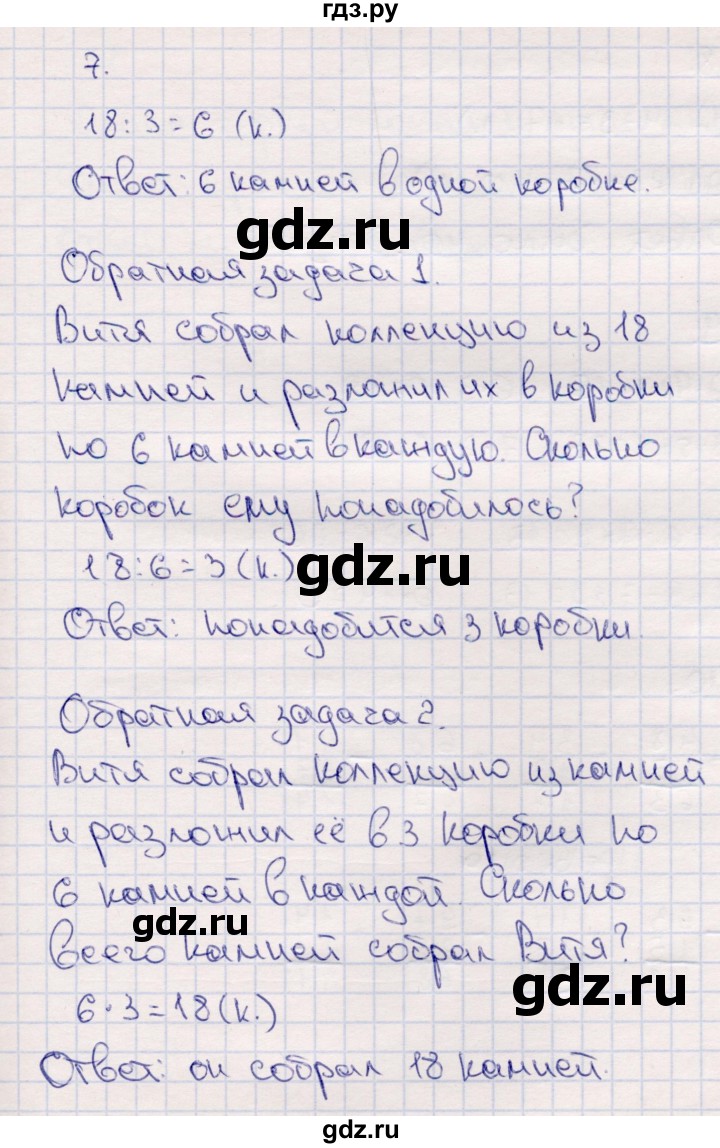 гдз.ру
7.
18:3=6 (к.)
Ответ: 6 камней в одной коробке.
gdz.ru
Обратная задача 1.
Витя собрал коллекцию из 18
камней и разложил их в коробки
по 6 камней в каждую. Сколько
коробок ему понадобилось?
18:6=3(к.)
gdz.ru
Ответ: понадобится 3 коробки.
Обратная задача 2.
Витя собрал коллекцию из камней
и разложил её в 3 коробки по
6 камней в каждой. Сколько
gdz.ru
всего камней собрал Витя?
6·3=18(к.)
gdz.ru
Ответ: он собрал 18 камней.
gdz.ru